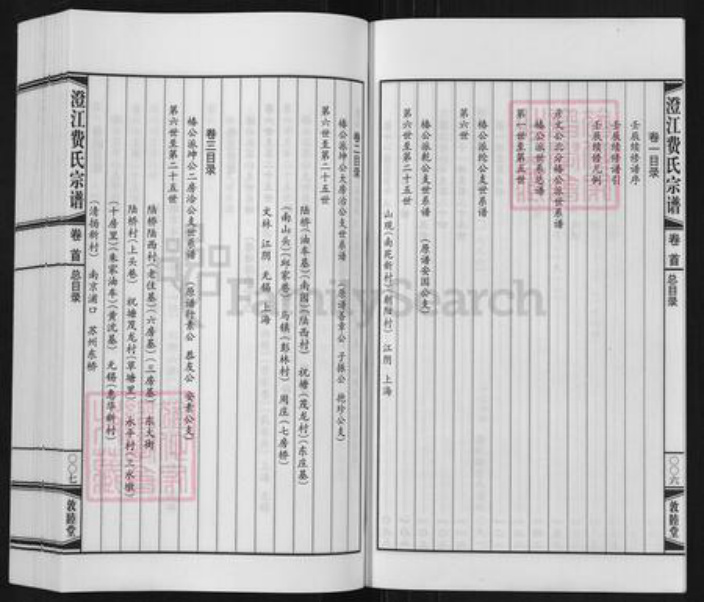 澄江费氏宗谱
卷首
总目录
〇〇六
敦睦堂
卷一目录
壬辰续修谱序
壬辰续修谱引
壬辰续修凡例
彦文公北分椿公派世系谱
椿公派世系总谱
第一世至第五世
椿公派纶公支世系谱
第六世
椿公派乾公支世系谱 （原谱安国公支）
第六世至第二十五世
山观（南苑新村）（朝阳村） 江阴 上海
卷二目录
椿公派坤公大房治公支世系谱 （原谱善章公 子振公 德珍公支）
第六世至第二十五世
陆桥（油车基）（南园）（陆西村） 祝塘（茂龙村）（东庄基）
（南山头）（邱家巷） 马镇（彭林村） 周庄（七房桥）
文林 江阴 无锡 上海
卷三目录
椿公派坤公二房洽公支世系谱 （原谱行素公 恭友公 安素公支）
第六世至第二十五世
陆桥陆西村（老住基）（六房基）（三房基） 东大街
陆桥村（上头巷） 祝塘茂龙村（草塘里） 永平村（三水墩）
（十房里）（朱家油车）（黄沈基） 无锡（惠华新村）
（清扬新村） 南京浦口 苏州东桥
澄江费氏宗谱
卷首
总目录
〇〇七
敦睦堂
FamilySearch